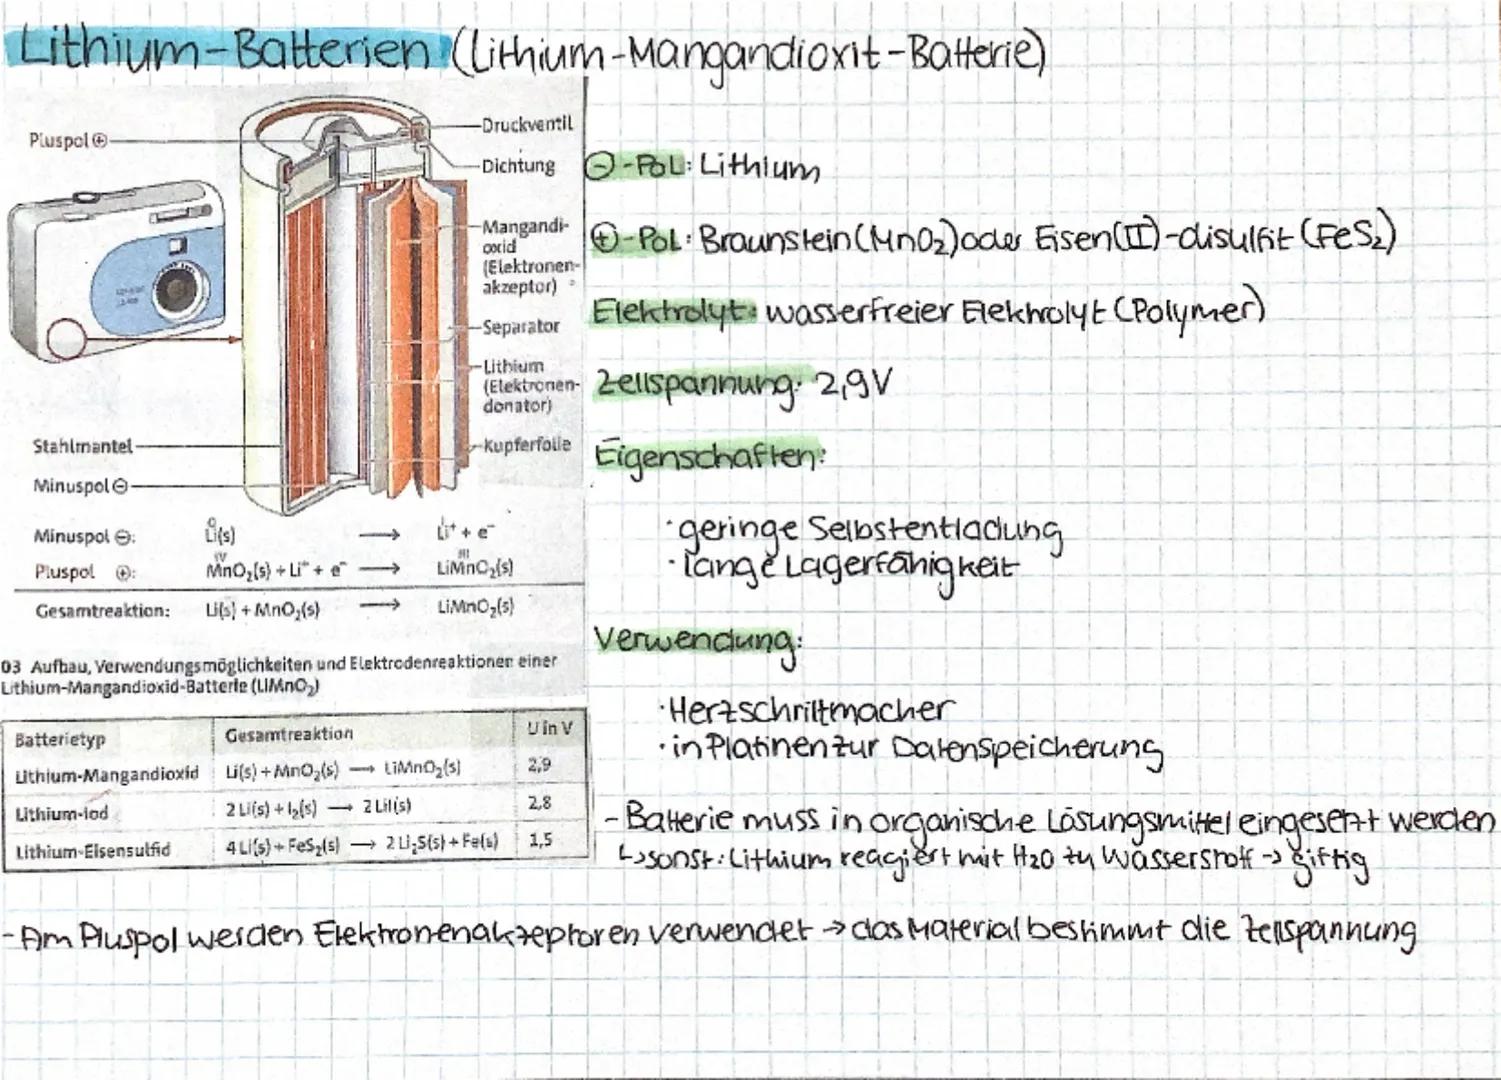 Lithium-Batterien (Lithium-Mangandioxit-Batterie)
Pluspol ⊕
Druckventil
Dichtung
Mangandi-
oxid
(Elektronen-
akzeptor)
Separator
Lithium
(Elektronen-
donator)
Kupferfolie
Stahlmantel
Minuspol ⊖
Minuspol ⊖: Li(s) → Li⁺ + e⁻
0
IV III
Pluspol ⊕: MnO₂(s) + Li⁺ + e⁻ → LiMnO₂(s)
Gesamtreaktion: Li(s) + MnO₂(s) → LiMnO₂(s)
03 Aufbau, Verwendungsmöglichkeiten und Elektrodenreaktionen einer
Lithium-Mangandioxid-Batterie (LiMnO₂)
Batterietyp Gesamtreaktion U in V
Lithium-Mangandioxid Li(s) + MnO₂(s) → LiMnO₂(s) 2,9
Lithium-Iod 2 Li(s) + I₂(s) → 2 LiI(s) 2,8
Lithium-Eisensulfid 4 Li(s) + FeS₂(s) → 2 Li₂S(s) + Fe(s) 1,5
⊖-Pol: Lithium
⊕-Pol: Braunstein (MnO₂) oder Eisen(II)-disulfit (FeS₂)
Elektrolyt: wasserfreier Elektrolyt (Polymer)
Zellspannung: 2,9V
Eigenschaften:
· geringe Selbstentladung
· lange Lagerfähigkeit
Verwendung:
· Herzschrittmacher
· in Platinen zur Datenspeicherung
- Batterie muss in organische Lösungsmittel eingesetzt werden
↳ sonst: Lithium reagiert mit H2O zu Wasserstoff → giftig
- Am Pluspol werden Elektronenakzeptoren verwendet → das Material bestimmt die Zellspannung